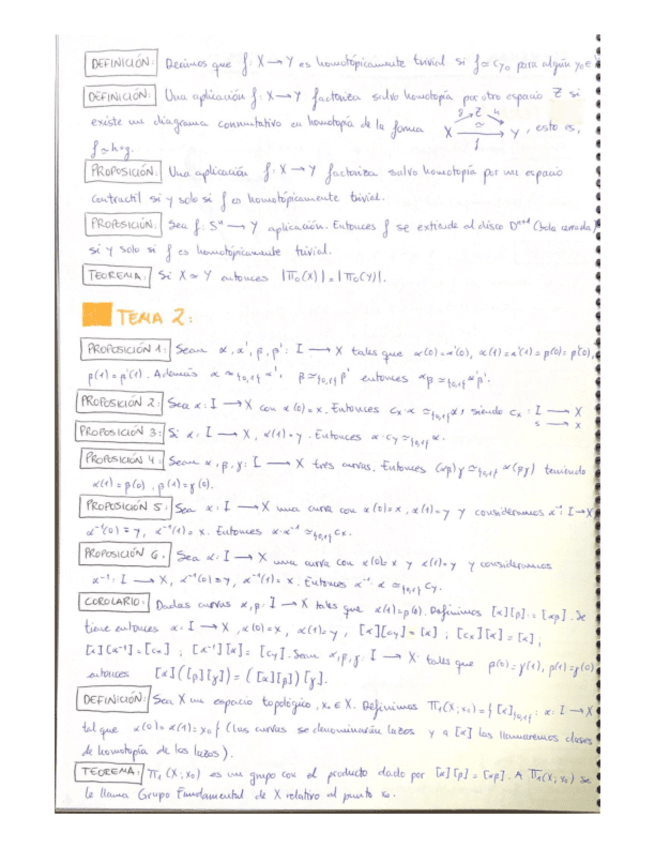 DEFINICIÓN: Decimos que f: X → Y es homotópicamente trivial si f ≃ c_{y₀} para algún y₀ ∈
DEFINICIÓN: Una aplicación f: X → Y factoriza salvo homotopía por otro espacio Z si
existe un diagrama conmutativo en homotopía de la forma X → Y, esto es, g Z h ≃ f
f ≃ h∘g.
PROPOSICIÓN: Una aplicación f: X → Y factoriza salvo homotopía por un espacio
contractil si y solo si f es homotópicamente trivial.
PROPOSICIÓN: Sea f: Sⁿ → Y aplicación. Entonces f se extiende al disco Dⁿ⁺¹ (bola cerrada)
si y solo si f es homotópicamente trivial.
TEOREMA: Si X ≃ Y entonces |π₀(X)| = |π₀(Y)|.
TEMA 2:
PROPOSICIÓN 1: Sean α, α', β, β': I → X tales que α(0)=α'(0), α(1)=α'(1)=β(0)=β'(0),
β(1)=β'(1). Además α ≃_{{0,1}} α', β ≃_{{0,1}} β' entonces αβ ≃_{{0,1}} α'β'.
PROPOSICIÓN 2: Sea α: I → X con α(0)=x. Entonces cx·α ≃_{{0,1}} α, siendo cx: I → X
s → x
PROPOSICIÓN 3: Si α: I → X, α(1)=y. Entonces α·cy ≃_{{0,1}} α.
PROPOSICIÓN 4: Sean α, β, γ: I → X tres curvas. Entonces (αβ)γ ≃_{{0,1}} α(βγ) teniendo
α(1)=β(0), β(1)=γ(0).
PROPOSICIÓN 5: Sea α: I → X una curva con α(0)=x, α(1)=y y consideramos α⁻¹: I → X
α⁻¹(0)=y, α⁻¹(1)=x. Entonces α·α⁻¹ ≃_{{0,1}} cx.
PROPOSICIÓN 6: Sea α: I → X una curva con α(0)=x y α(1)=y y consideramos
α⁻¹: I → X, α⁻¹(0)=y, α⁻¹(1)=x. Entonces α⁻¹·α ≃_{{0,1}} cy.
COROLARIO: Dadas curvas α, β: I → X tales que α(1)=β(0). Definimos [α][β]:=[αβ]. Se
tiene entonces α: I → X, α(0)=x, α(1)=y, [α][cy]=[α]; [cx][α]=[α];
[α][α⁻¹]=[cx]; [α⁻¹][α]=[cy]. Sean α, β, γ: I → X tales que
entonces [α]([β][γ]) = ([α][β])[γ].
DEFINICIÓN: Sea X un espacio topológico, x₀ ∈ X. Definimos π₁(X; x₀) = {[α]_{{0,1}} : α: I → X
tal que α(0)=α(1)=x₀} (las curvas se denominarán lazos y a [α] las llamaremos clases
de homotopía de los lazos).
TEOREMA: π₁(X; x₀) es un grupo con el producto dado por [α][β]=[αβ]. A π₁(X; x₀) se
le llama Grupo Fundamental de X relativo al punto x₀.